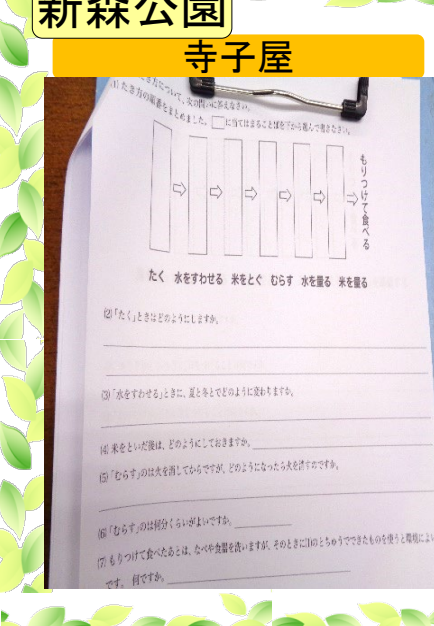 新森公園
寺子屋
き方について、次の問いに答えなさい。
(1) たき方の順番をまとめました。□に当てはまることばを下から選んで書きなさい。
⇨ ⇨ ⇨ ⇨ ⇨ ⇨ もりつけて食べる
たく 水をすわせる 米をとぐ むらす 水を量る 米を量る
(2)「たく」ときはどのようにしますか。
(3)「水をすわせる」ときに、夏と冬とでどのように変わりますか。
(4) 米をといだ後は、どのようにしておきますか。
(5)「むらす」のは火を消してからですが、どのようになったら火を消すのですか。
(6)「むらす」のは何分くらいがよいですか。
(7) もりつけて食べたあとは、なべや食器を洗いますが、そのときに(1)のとちゅうでできたものを使うと環境によい
です。何ですか。